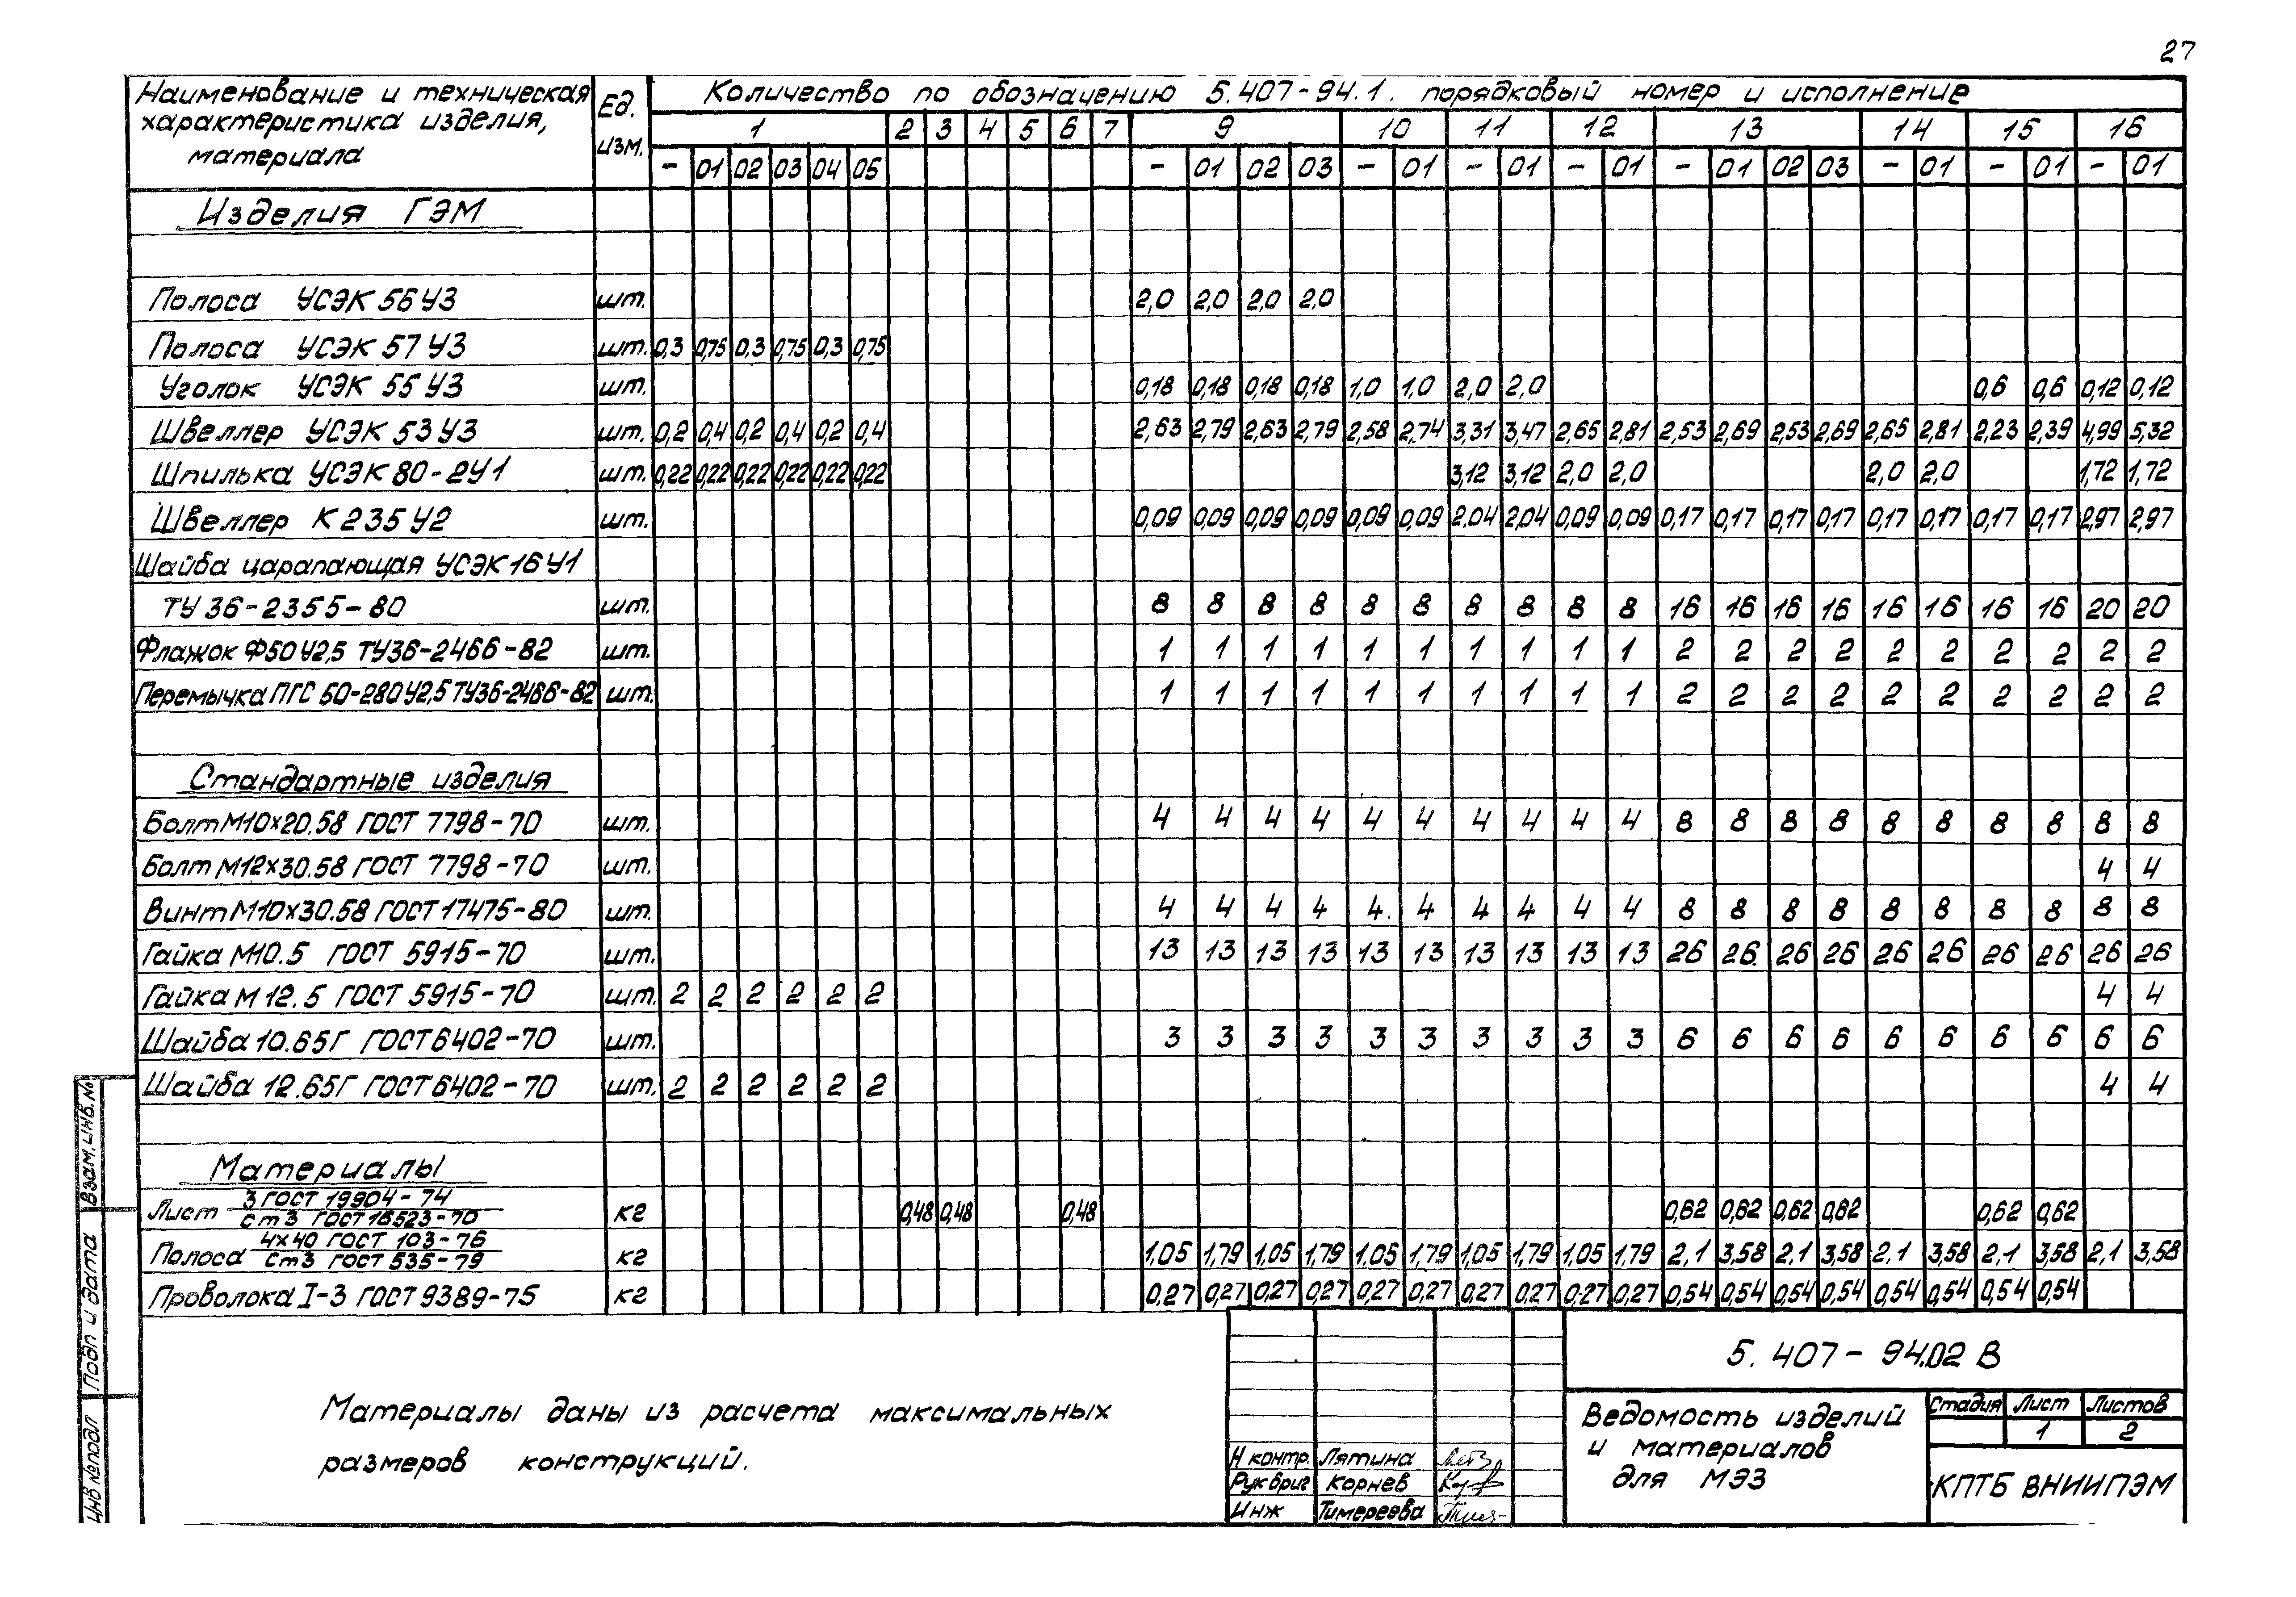 27
Наименование и техническая характеристика изделия, материала
Ед. изм.
Количество по обозначению 5.407-94.1. порядковый номер и исполнение
1 2 3 4 5 6 7 9 10 11 12 13 14 15 16
- 01 02 03 04 05 - 01 02 03 - 01 - 01 - 01 - 01 02 03 - 01 - 01 - 01
Изделия ГЭМ
Полоса УСЭК 56 У3 шт. 2,0 2,0 2,0 2,0
Полоса УСЭК 57 У3 шт. 0,3 0,75 0,3 0,75 0,3 0,75
Уголок УСЭК 55 У3 шт. 0,18 0,18 0,18 0,18 1,0 1,0 2,0 2,0 0,6 0,6 0,12 0,12
Швеллер УСЭК 53 У3 шт. 0,2 0,4 0,2 0,4 0,2 0,4 2,63 2,79 2,63 2,79 2,58 2,74 3,31 3,47 2,65 2,81 2,53 2,69 2,53 2,69 2,65 2,81 2,23 2,39 4,99 5,32
Шпилька УСЭК 80-2У1 шт. 0,22 0,22 0,22 0,22 0,22 0,22 3,12 3,12 2,0 2,0 2,0 2,0 1,72 1,72
Швеллер К 235 У2 шт. 0,09 0,09 0,09 0,09 0,09 0,09 2,04 2,04 0,09 0,09 0,17 0,17 0,17 0,17 0,17 0,17 0,17 0,17 2,97 2,97
Шайба царапающая УСЭК 16 У1
ТУ 36-2355-80 шт. 8 8 8 8 8 8 8 8 8 8 16 16 16 16 16 16 16 16 20 20
Флажок Ф50 У2,5 ТУ36-2466-82 шт. 1 1 1 1 1 1 1 1 1 1 2 2 2 2 2 2 2 2 2 2
Перемычка ПГС 50-280У2,5 ТУ36-2466-82 шт. 1 1 1 1 1 1 1 1 1 1 2 2 2 2 2 2 2 2 2 2
Стандартные изделия
Болт М10×20.58 ГОСТ 7798-70 шт. 4 4 4 4 4 4 4 4 4 4 8 8 8 8 8 8 8 8 8 8
Болт М12×30.58 ГОСТ 7798-70 шт. 4 4
Винт М10×30.58 ГОСТ 17475-80 шт. 4 4 4 4 4. 4 4 4 4 4 8 8 8 8 8 8 8 8 8 8
Гайка М10.5 ГОСТ 5915-70 шт. 13 13 13 13 13 13 13 13 13 13 26 26. 26 26 26 26 26 26 26 26
Гайка М 12.5 ГОСТ 5915-70 шт. 2 2 2 2 2 2 4 4
Шайба 10.65Г ГОСТ 6402-70 шт. 3 3 3 3 3 3 3 3 3 3 6 6 6 6 6 6 6 6 6 6
Шайба 12.65Г ГОСТ 6402-70 шт. 2 2 2 2 2 2 4 4
Материалы
Лист 3 ГОСТ 19904-74 / Ст3 ГОСТ 16523-70 кг 0,48 0,48 0,48 0,62 0,62 0,62 0,62 0,62 0,62
Полоса 4×40 ГОСТ 103-76 / Ст3 ГОСТ 535-79 кг 1,05 1,79 1,05 1,79 1,05 1,79 1,05 1,79 1,05 1,79 2,1 3,58 2,1 3,58 2,1 3,58 2,1 3,58 2,1 3,58
Проволока I-3 ГОСТ 9389-75 кг 0,27 0,27 0,27 0,27 0,27 0,27 0,27 0,27 0,27 0,27 0,54 0,54 0,54 0,54 0,54 0,54 0,54 0,54
Материалы даны из расчета максимальных
размеров конструкций.
5. 407-94.02 В
Ведомость изделий
и материалов
для МЭЗ
Стадия Лист Листов
1 2
КПТБ ВНИИПЭМ
Н контр. Лятина
Рук бриг Корнев
Инж Тимереева
Взам. инв. №
Подп и дата
Инв № подл